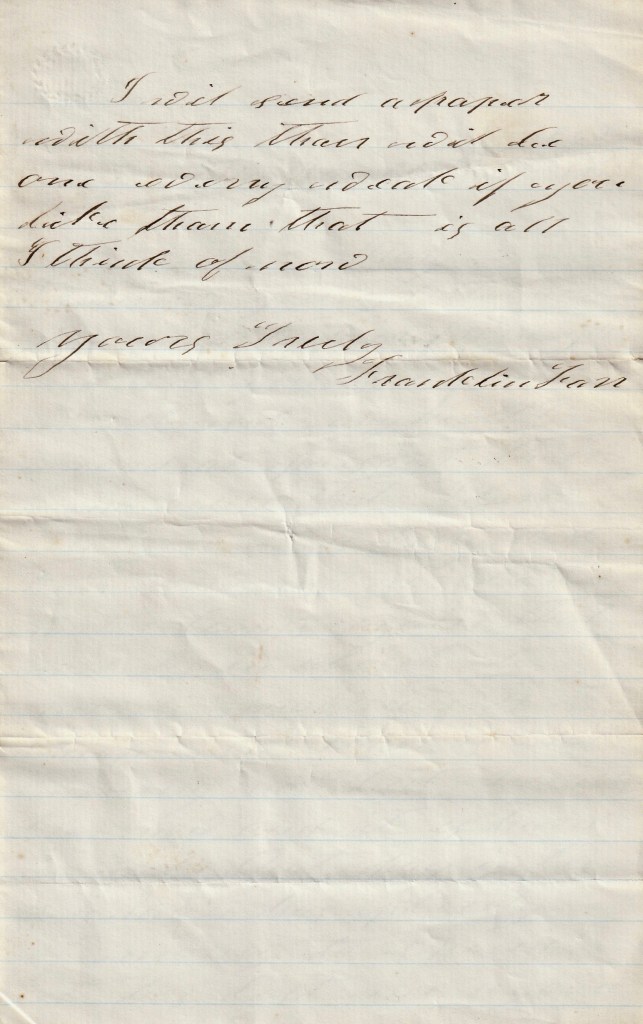 I wil send a paper
with this thare wil be
one every weak if you
like tham that is all
I think of now
yours Truly
Franklin Farr